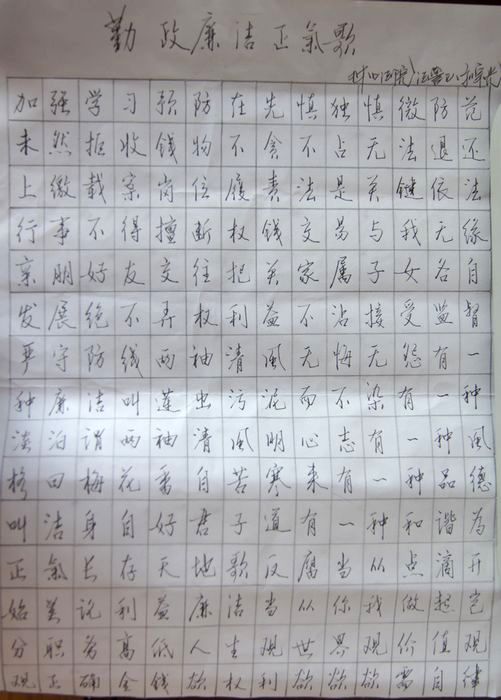 勤政廉洁正氣歌
加强学习预防在先慎独慎微防范
未然拒收钱物不贪不占无法退还
上缴载案岗位履责法是关键依法
行事不得擅断权钱交易与我无缘
亲朋好友交往把关家属子女各自
发展绝不弄权利益不沾接受监督
严守防线两袖清風无悔无怨有一
种廉洁叫莲出污泥而不染有一种
淡泊谓两袖清風明心志有一种風
格曰梅花香自苦寒来有一种品德
叫洁身自好君子道有一种和谐为
正氣长存天地歌反腐当从点滴开
始莫说利益廉洁当从你我做起岂
分职务高低人生观世界观价值观
观正确金钱欲权利欲欲欲需自律